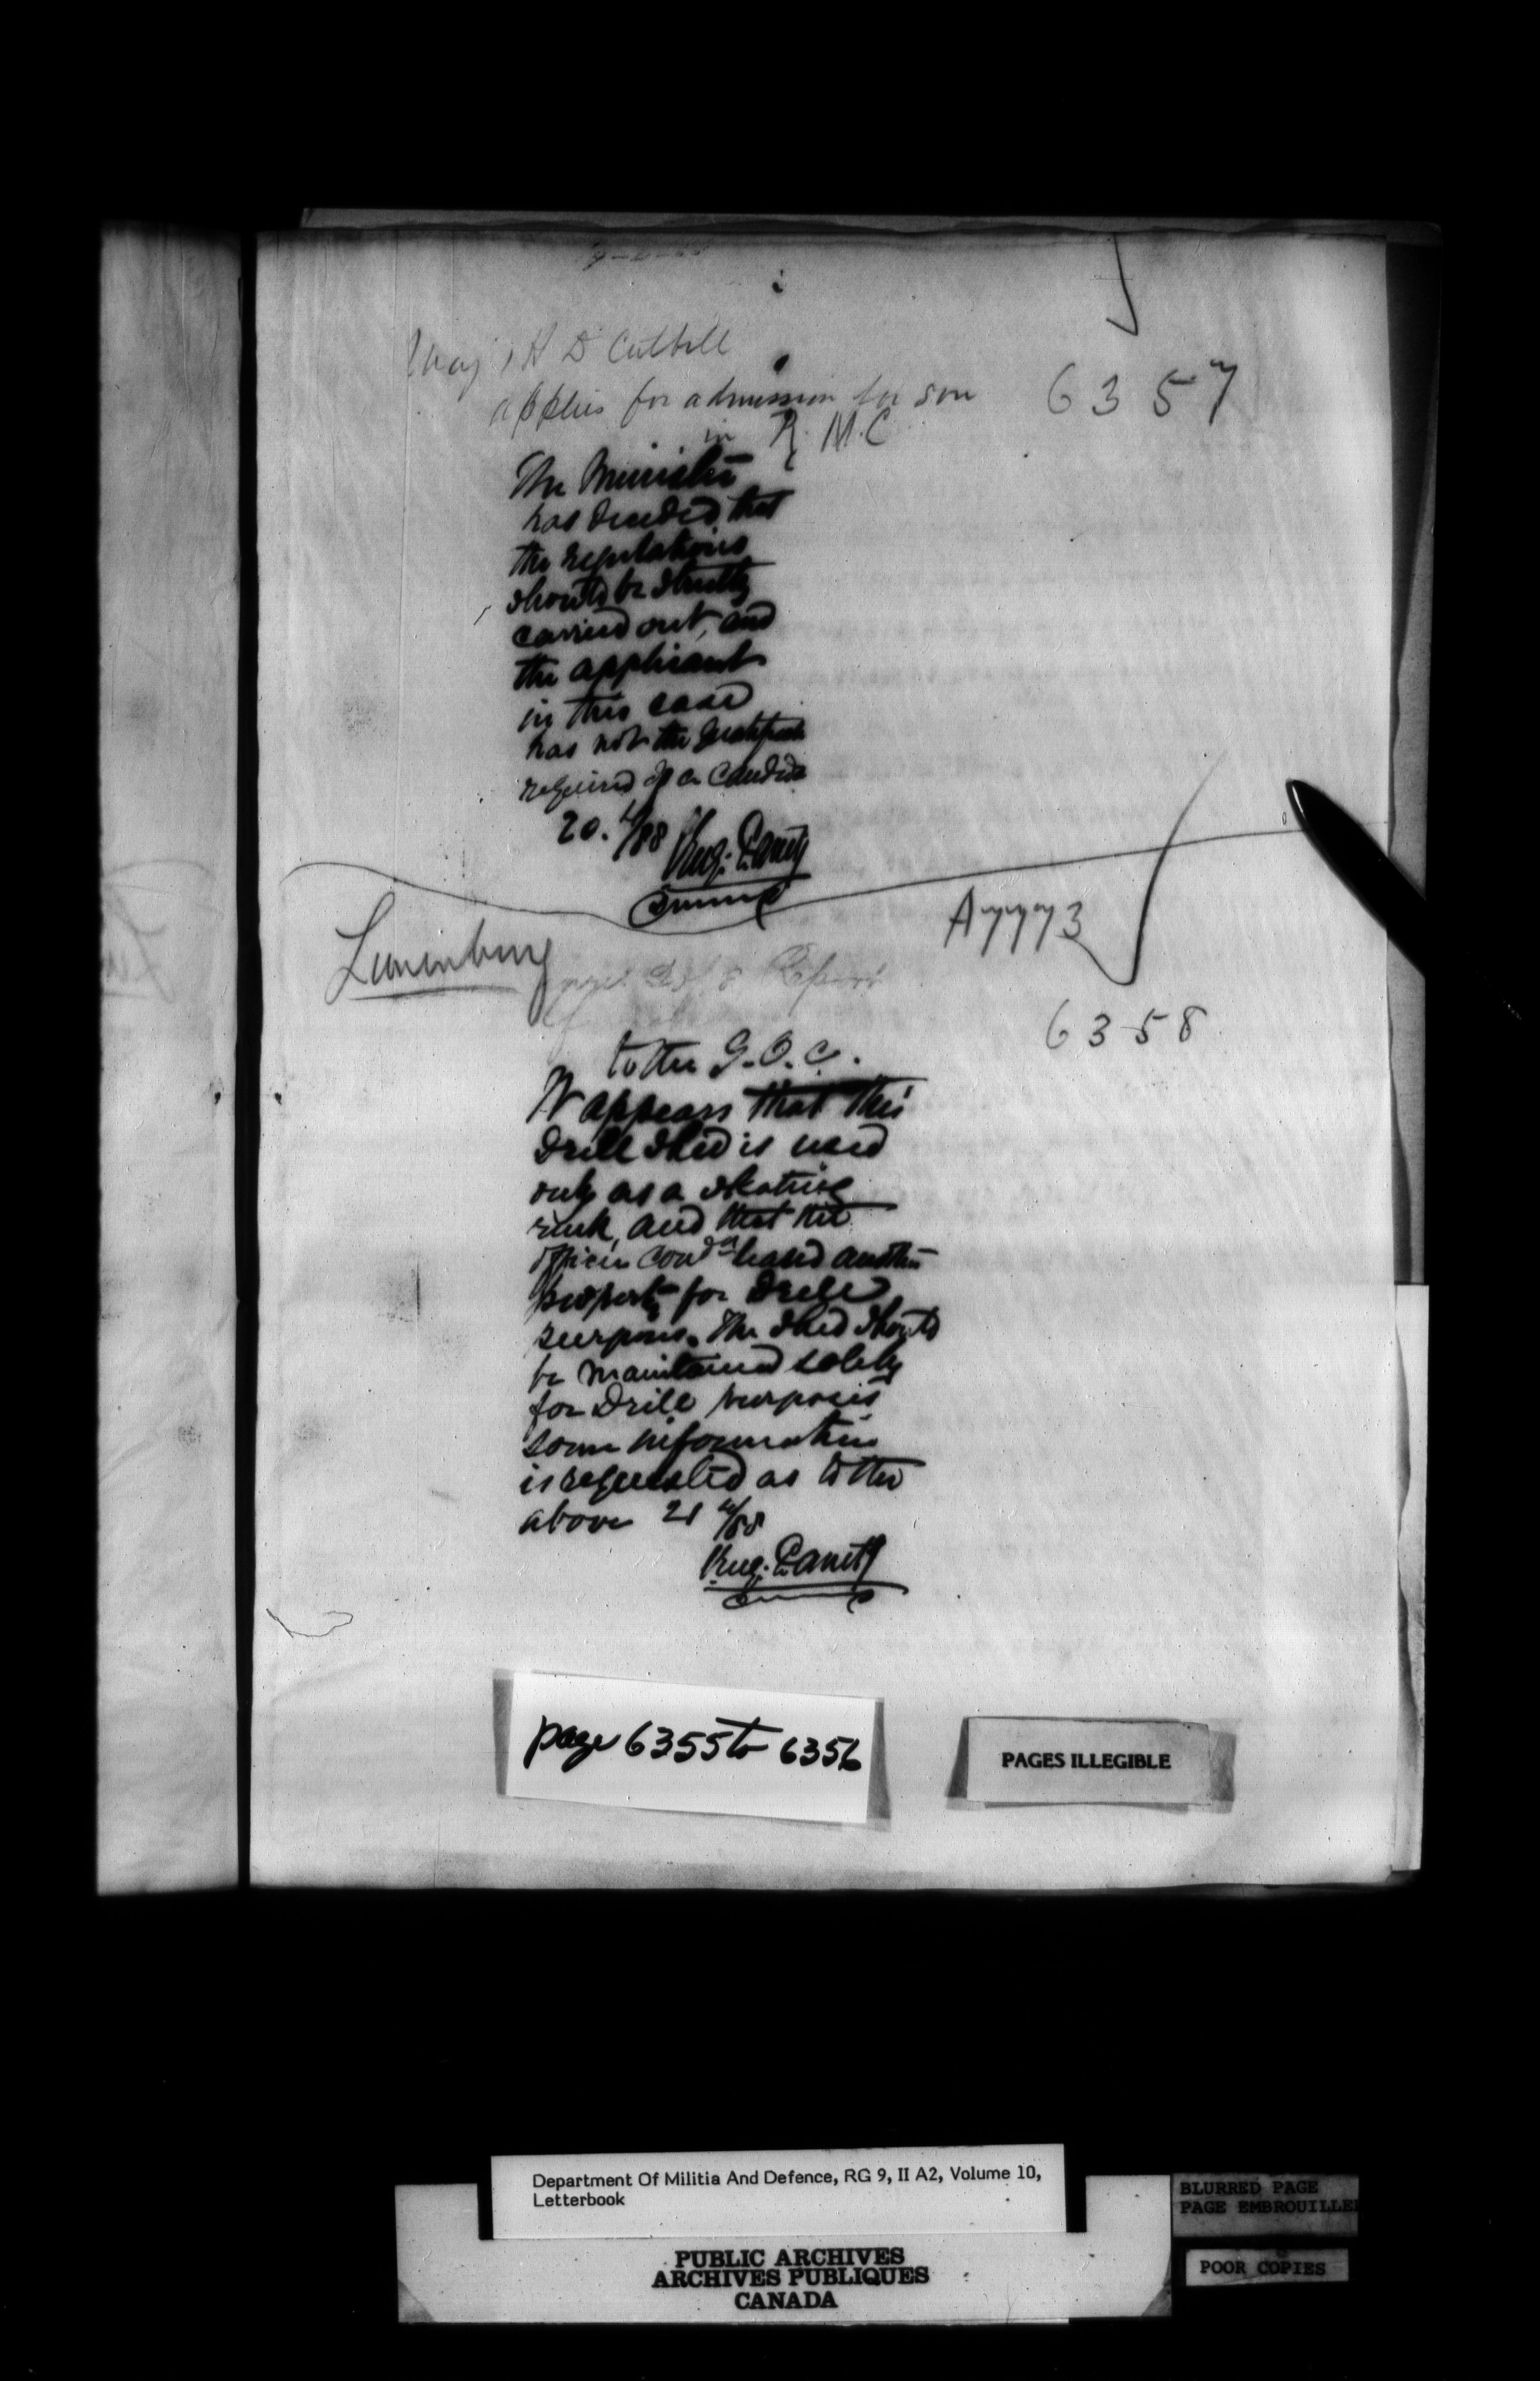 Maj. H D Cutbill
applies for admission for son
in R. M. C
6357
The Minister
has decided that
the regulations
should be strictly
carried out, and
the applicant
in this case
has not the
required of a candidate
20. /88
Lunenburg
A77773
6358
to the G. O. C.
It appears that this
Drill Shed is used
only as a skating
rink, and that the
officer Comd^g leased another
property for Drill
purposes. The Shed should
be maintained solely
for Drill purposes
some information
is requested as to the
above 21 /88
page 6355 to 6356
PAGES ILLEGIBLE
Department Of Militia And Defence, RG 9, II A2, Volume 10,
Letterbook
PUBLIC ARCHIVES
ARCHIVES PUBLIQUES
CANADA
BLURRED PAGE
PAGE EMBROUILLEE
POOR COPIES